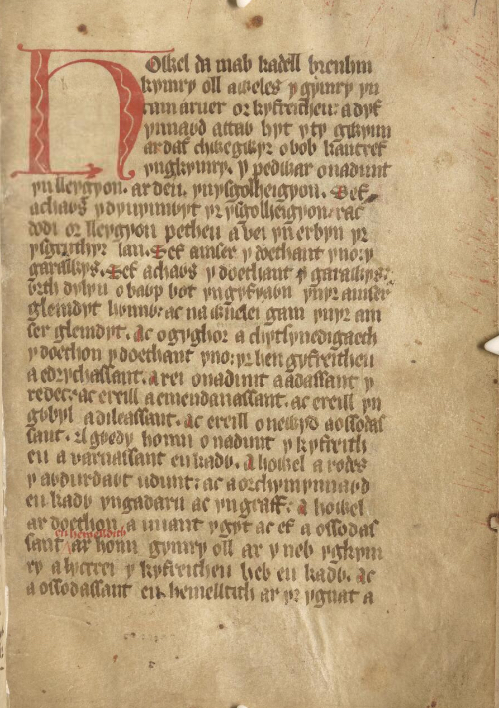 Howel da mab kadell brenhin
kymry oll a weles y gymry yn
cam aruer or kyfreitheu: a dyf
ynnawd attaw hyt y ty gwynn
ar daf chwegwyr o bob kantref
yngkymry. y pedwar onadunt
yn lleygyon. ar deu. yn ysgolheigyon. Sef
achaws y dynnwyt yr ysgolheigyon. rac
dodi or lleygyon petheu a vei yn erbyn yr
ysgruthyr lan. Sef amser y doethant yno: y
garawys. Sef achaws y doethant y garawys:
wrth dylyu o bawp bot yn gyfyawn ynyr amser
gleindyt hwnnw: ac na wnelei gam ynyr am
ser gleindyt. Ac o gyghor a chytsynedigaeth
y doethon y doethant yno: yr hen gyfreitheu
a edrychassant. A rei onadunt a adassant y
redec: ac ereill a emendanassant. ac ereill yn
gwbyl a dileassant. ac ereill o newyd a ossodas
sant. A gwedy honni onadunt y kyfreith
eu a varnassant eu kadw. A howel a rodes
y awdurdawt udunt: ac a orchymynnawd
eu kadw yngadarn ac yngraff. A howel
ar doethon a uuant ygyt ac ef a ossodas
sant eu hemendith ar honn gymry oll ar y neb ygkym
ry a lyccrei y kyfreitheu heb eu kadw. Ac
a ossodassant eu hemelltith ar yr ygnat a